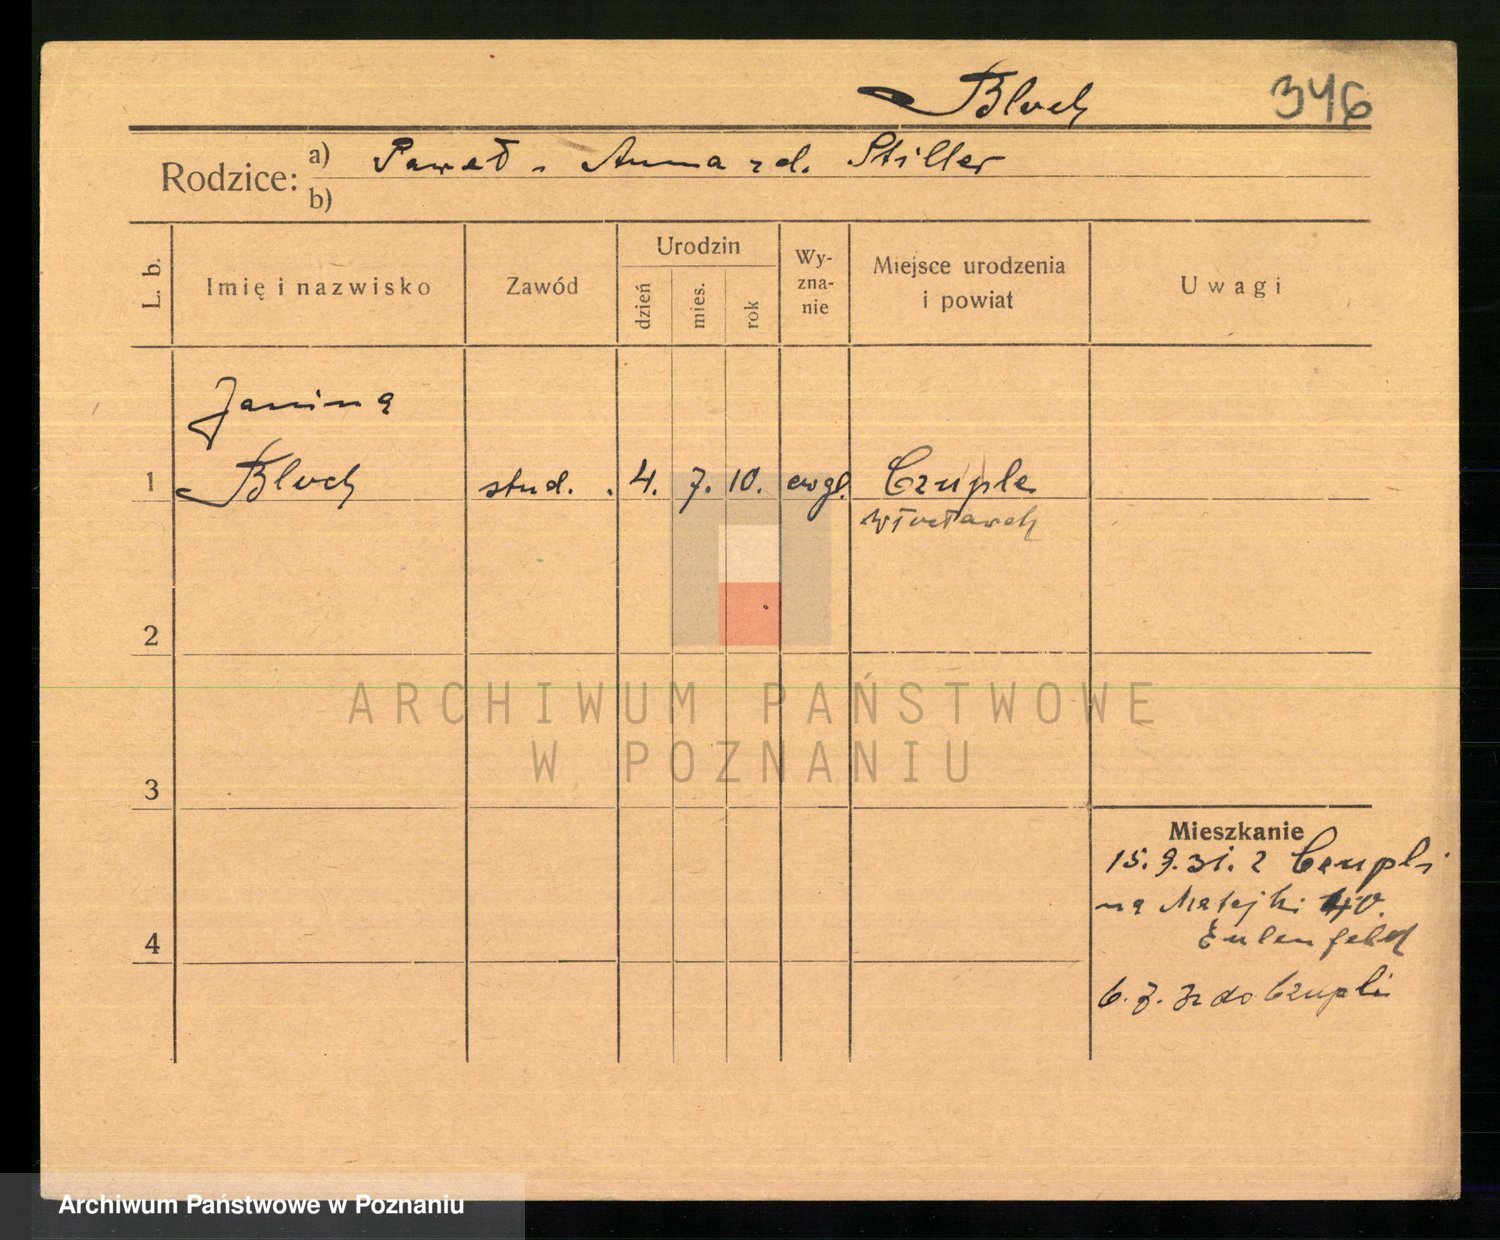 Bloch 346
Rodzice: a) Paweł . Anna z d. Stiller
b)
L. b. Imię i nazwisko Zawód Urodzin dzień mies. rok Wyznanie Miejsce urodzenia i powiat Uwagi
Janina
1 Bloch stud. . 4. 7. 10. ewgl. Czuple
Włocławek
2
ARCHIWUM PAŃSTWOWE
W POZNANIU
3
Mieszkanie
15.9.31. z Czupli
na Matejki 40.
4
Eulenfeld
6.7.32 do Czupli
Archiwum Państwowe w Poznaniu